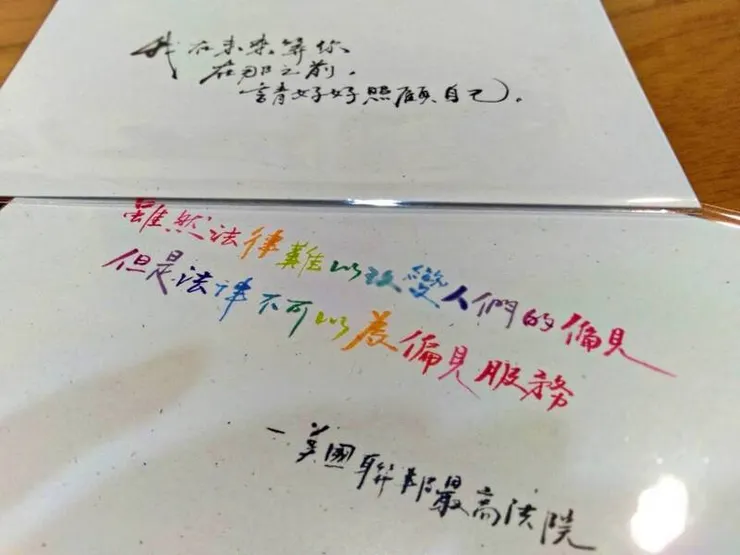 我在未來等你
在那之前,
請好好照顧自己。
雖然法律難以改變人們的偏見
但是法律不可以為偏見服務
—美國聯邦最高法院